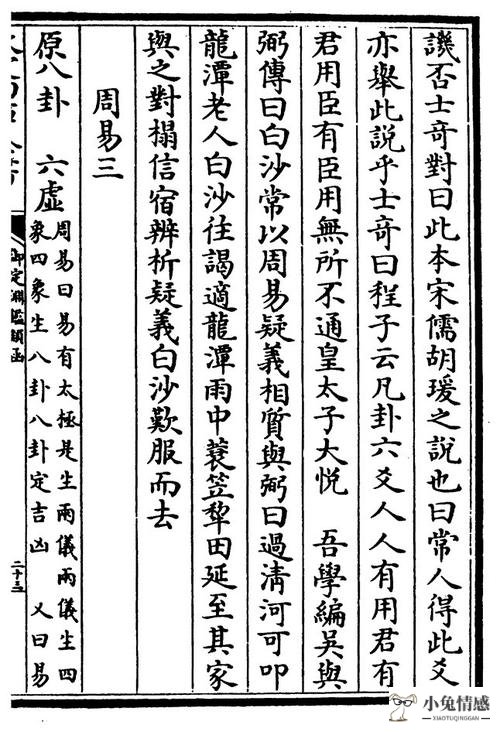 譏否士竒對曰此本宋儒胡瑗之說也曰常人得此爻
亦舉此說乎士竒曰程子云凡卦六爻人人有用君有
君用臣有臣用無所不通皇太子大悅　吾學編吳與
弼傳曰白沙常以周易疑義相質與弼曰過清河可叩
龍潭老人白沙往謁適龍潭雨中蓑笠犂田延至其家
與之對榻信宿辨析疑義白沙歎服而去
周易三
原八卦　六虛　周易曰易有太極是生兩儀兩儀生四
象四象生八卦八卦定吉凶　又曰易
御定淵鑑類函
二十三
小兔情感
XIAOTUQINGGAN